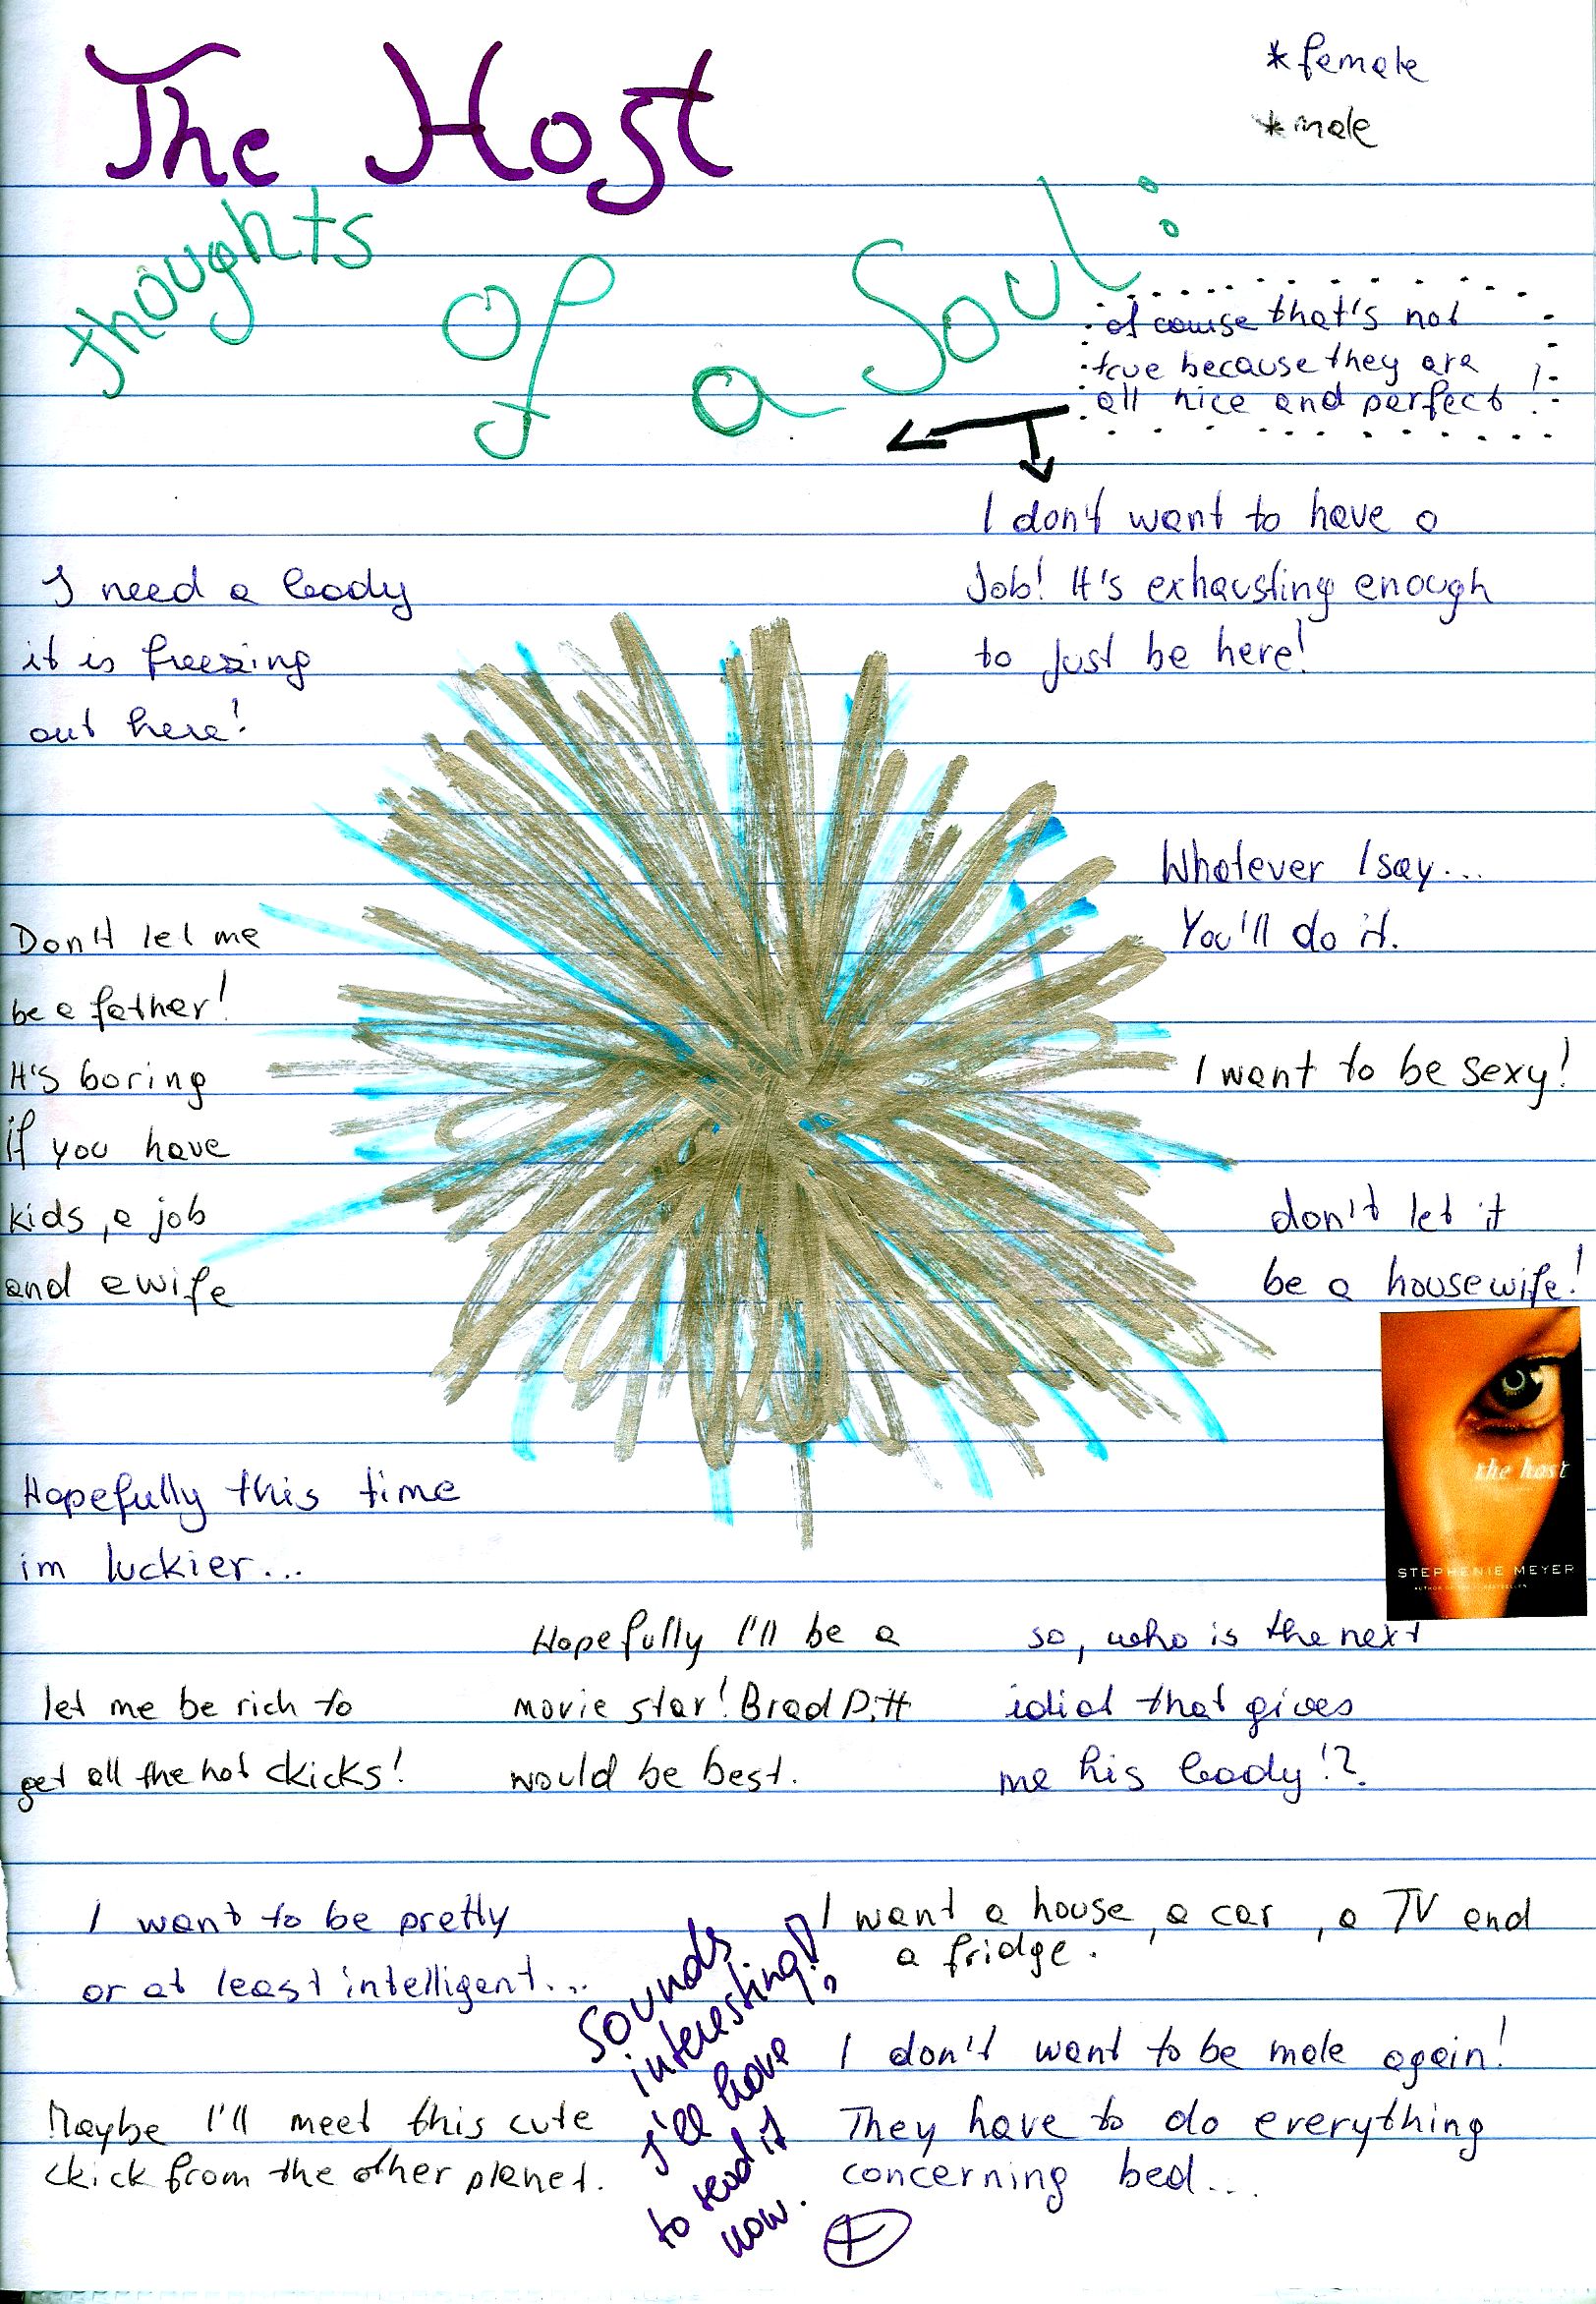 The Host
*female
*male
thoughts of a Soul:
of course that's not
true because they are
all nice and perfect!
I don't want to have a
Job! It's exhausting enough
to just be here!
I need a body
it is freezing
out here!
Whatever I say...
You'll do it.
Don't let me
be a father!
It's boring
if you have
kids, a job
and a wife
I want to be sexy!
don't let it
be a housewife!
the host
STEPHENIE MEYER
Hopefully this time
im luckier...
Hopefully I'll be a
movie star! Brad Pitt
would be best.
so, who is the next
idiot that gives
me his body!?
let me be rich to
get all the hot ckicks!
I want to be pretty
or at least intelligent...
I want a house, a car, a TV and
a fridge.
I don't want to be male again!
They have to do everything
concerning bed...
Maybe I'll meet this cute
ckick from the other planet.
Sounds
interesting!
I'll have
to read it
now.